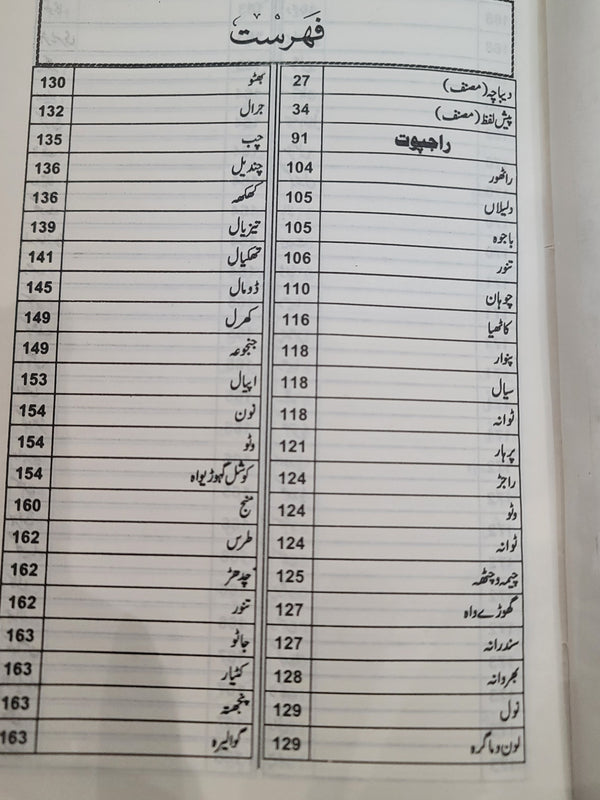 فہرست
دیباچہ (مصنف) 27
پیش لفظ (مصنف) 34
راجپوت 91
راٹھور 104
دلیلاں 105
باجوہ 105
تنور 106
چوہان 110
کاٹھیا 116
پنوار 118
سیال 118
ٹوانہ 118
پرہار 121
راجڑ 124
وٹو 124
ٹوانہ 124
چیمہ وچٹھہ 125
گھوڑے واہ 127
سندرانہ 127
بھروانہ 128
نول 129
لون وماگرہ 129
بھٹو 130
جرال 132
چب 135
چندیل 136
کھکھہ 136
تیزیال 139
تھکیال 141
ڈومال 145
کھرل 149
جنجوعہ 149
اپیال 153
نون 154
وٹو 154
کوشل گہوڑیواہ 154
منج 160
طرس 162
چدھڑ 162
تنور 162
جاٹو 163
کٹیار 163
پنجھتہ 163
گوالیرہ 163